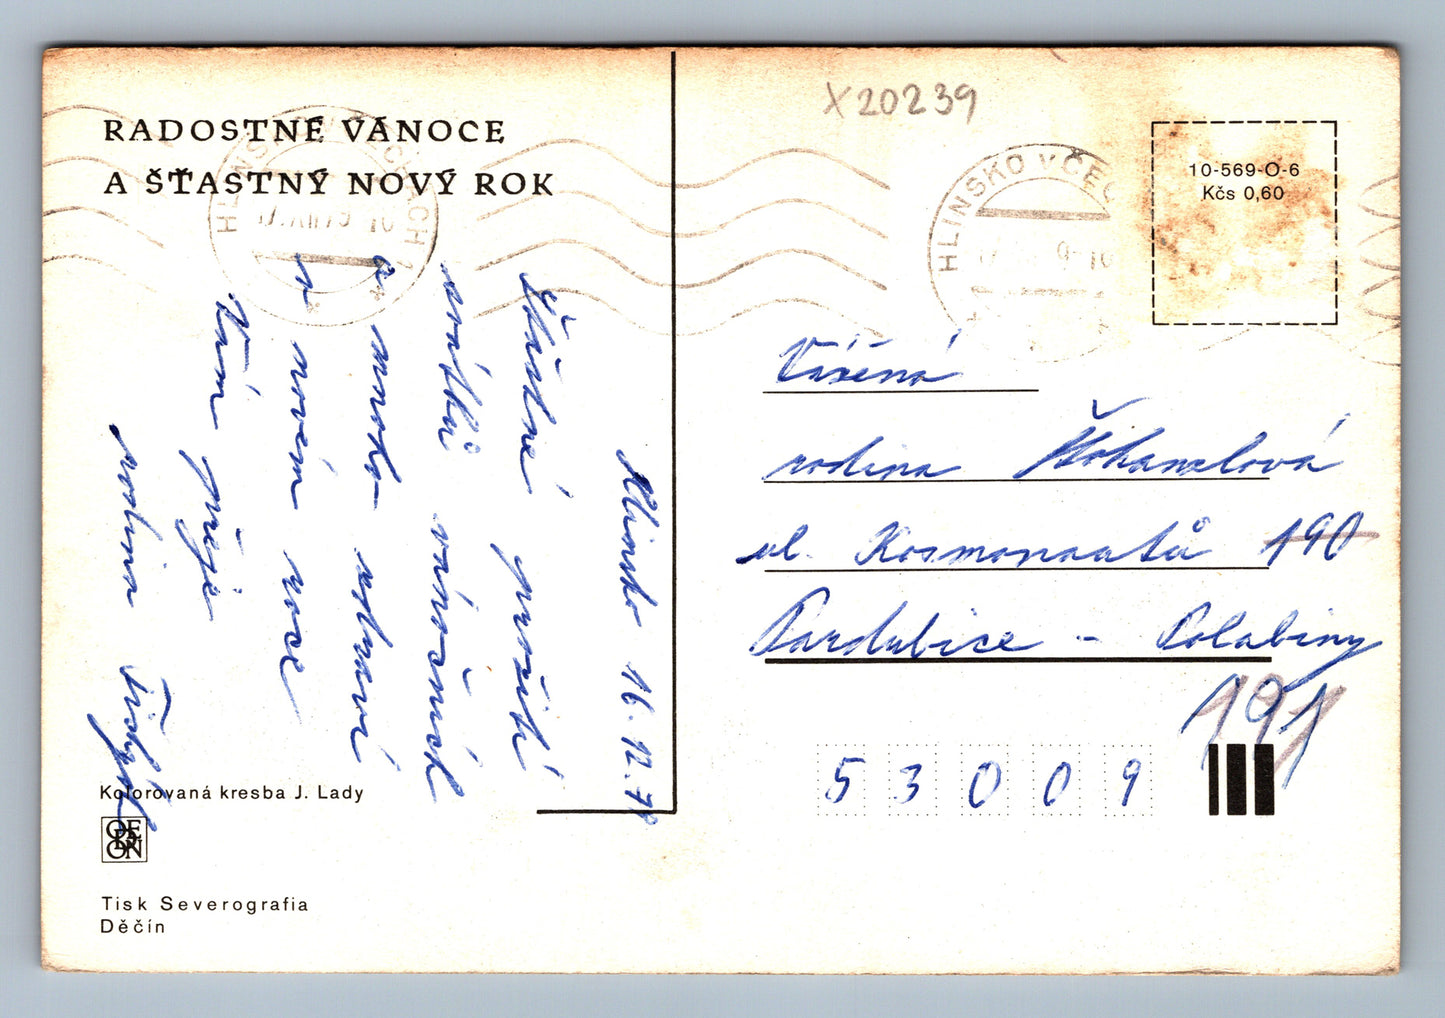 X20239
RADOSTNÉ VÁNOCE
A ŠŤASTNÝ NOVÝ ROK
HLINSKO V ČECHÁCH 1
HLINSKO V ČEC
10-569-O-6
Kčs 0,60
Hlinsko 16.12.79
Šťastné prožití
svátků vánočních
a mnoho zdraví
v novém roce
Vám přeje
rodina
Vážená
rodina
ul. Kosmonautů 190
Pardubice - Polabiny
191
53009
Kolorovaná kresba J. Lady
ODEON
Tisk Severografia
Děčín